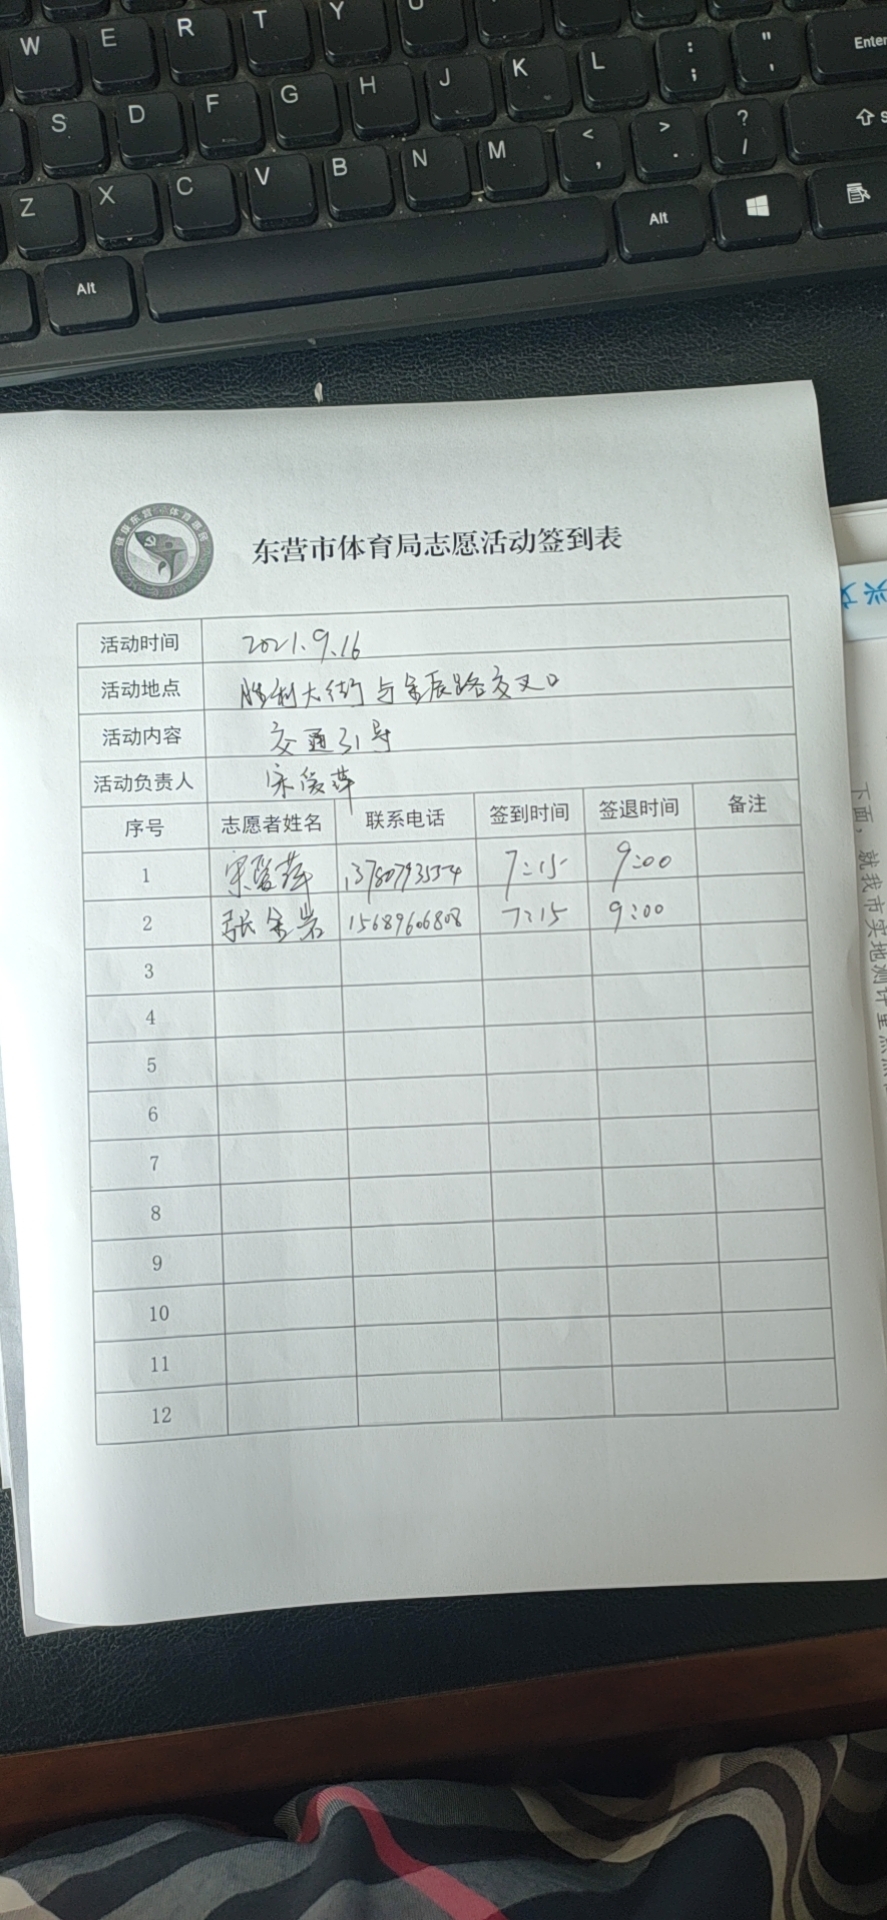 W E R T Y U
S D F G H J K L : ; " ' Enter
Z X C V B N M < , > . ? /
Alt Alt
东营市体育局志愿活动签到表
活动时间 2021.9.16
活动地点 胜利大街与金辰路交叉口
活动内容 交通引导
活动负责人 宋俊萍
序号 志愿者姓名 联系电话 签到时间 签退时间 备注
1 7:15 9:00
2 张金岩 15689606808 7:15 9:00
3
4
5
6
7
8
9
10
11
12
下面，就我市实地测评